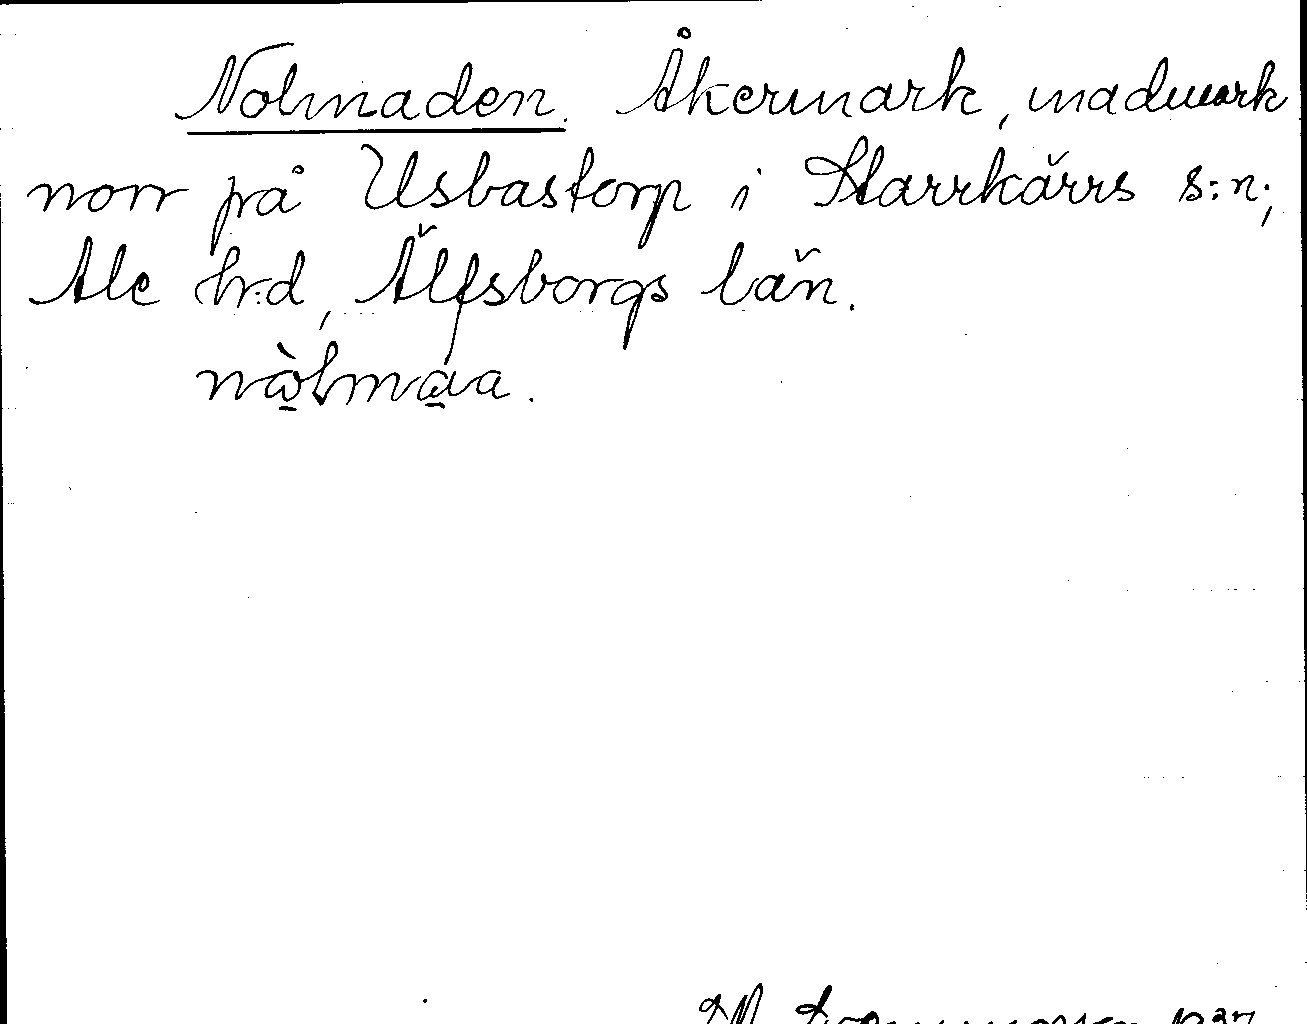 Nolmaden. Åkermark, madmark
norr på Usbastorp i Starrkärrs s:n;
Ale h:d, Älfsborgs län.
nὼlmɑ̱́a.
1937